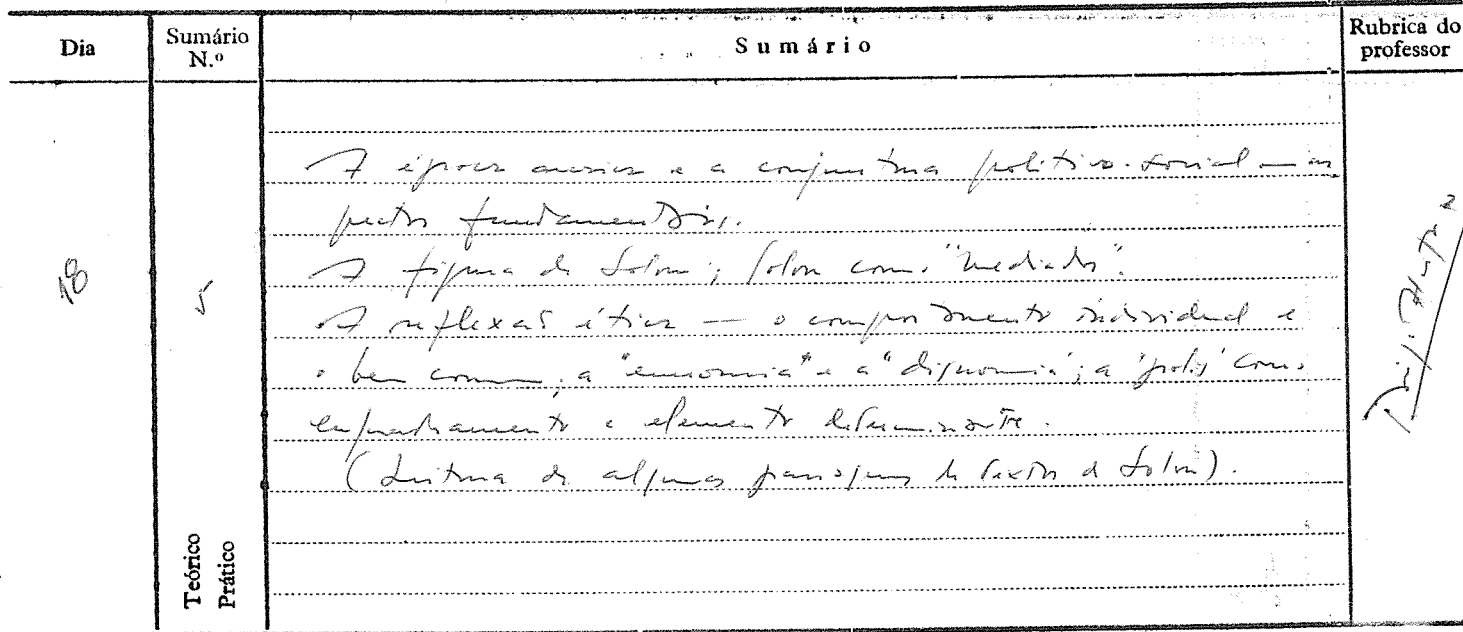 Dia
Sumário N.º
Sumário
Rubrica do professor
18
5
A época arcaica e a conjuntura político-social — as
pectos fundamentais.
A figura de Solon; Solon como "mediador".
A reflexão ética — o comportamento individual e
o bem comum; a "eunomia" e a "disnomia"; a 'polis' como
enquadramento e elemento determinante.
(Leitura de algumas passagens de textos de Solon).
Teórico
Prático